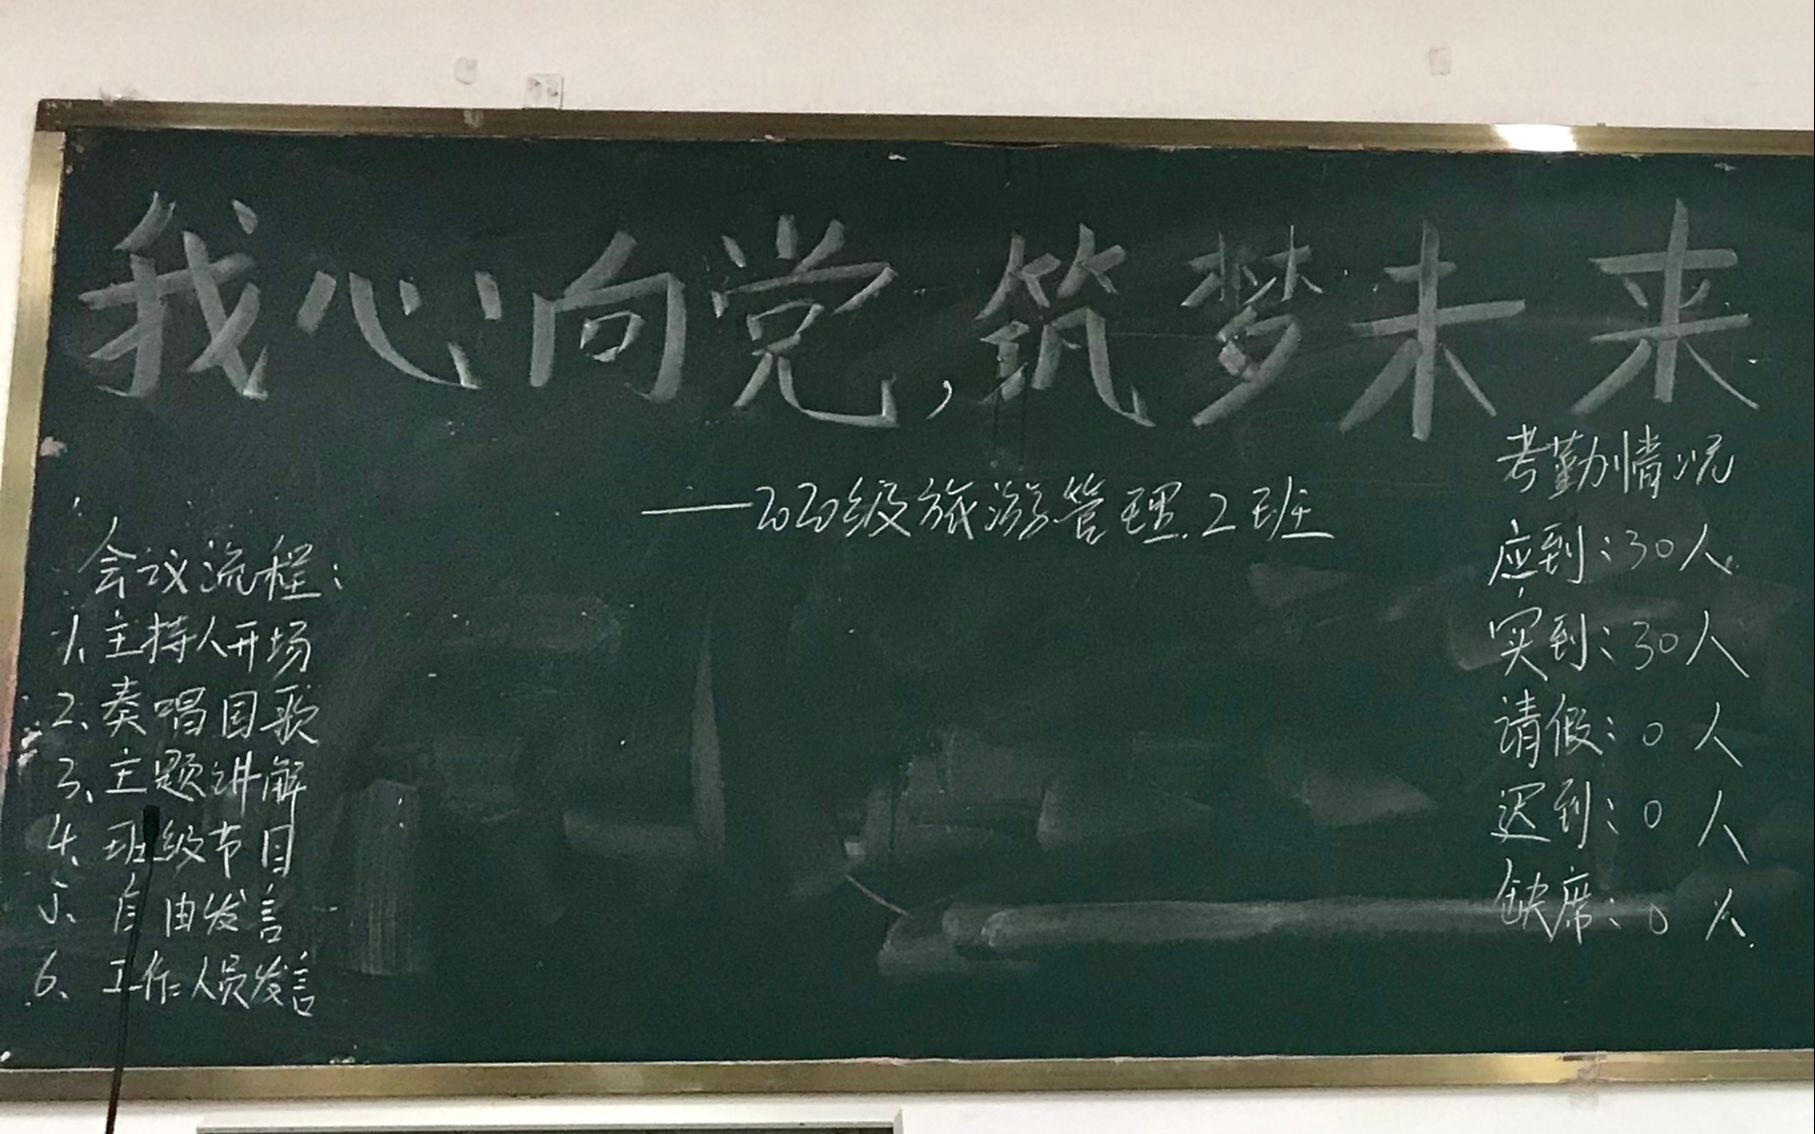 我心向党,筑梦未来
——2020级旅游管理2班
会议流程:
1、主持人开场
2、奏唱国歌
3、主题讲解
4、班级节目
5、自由发言
6、工作人员发言
考勤情况
应到:30人
实到:30人
请假:0人
迟到:0人
缺席:0人